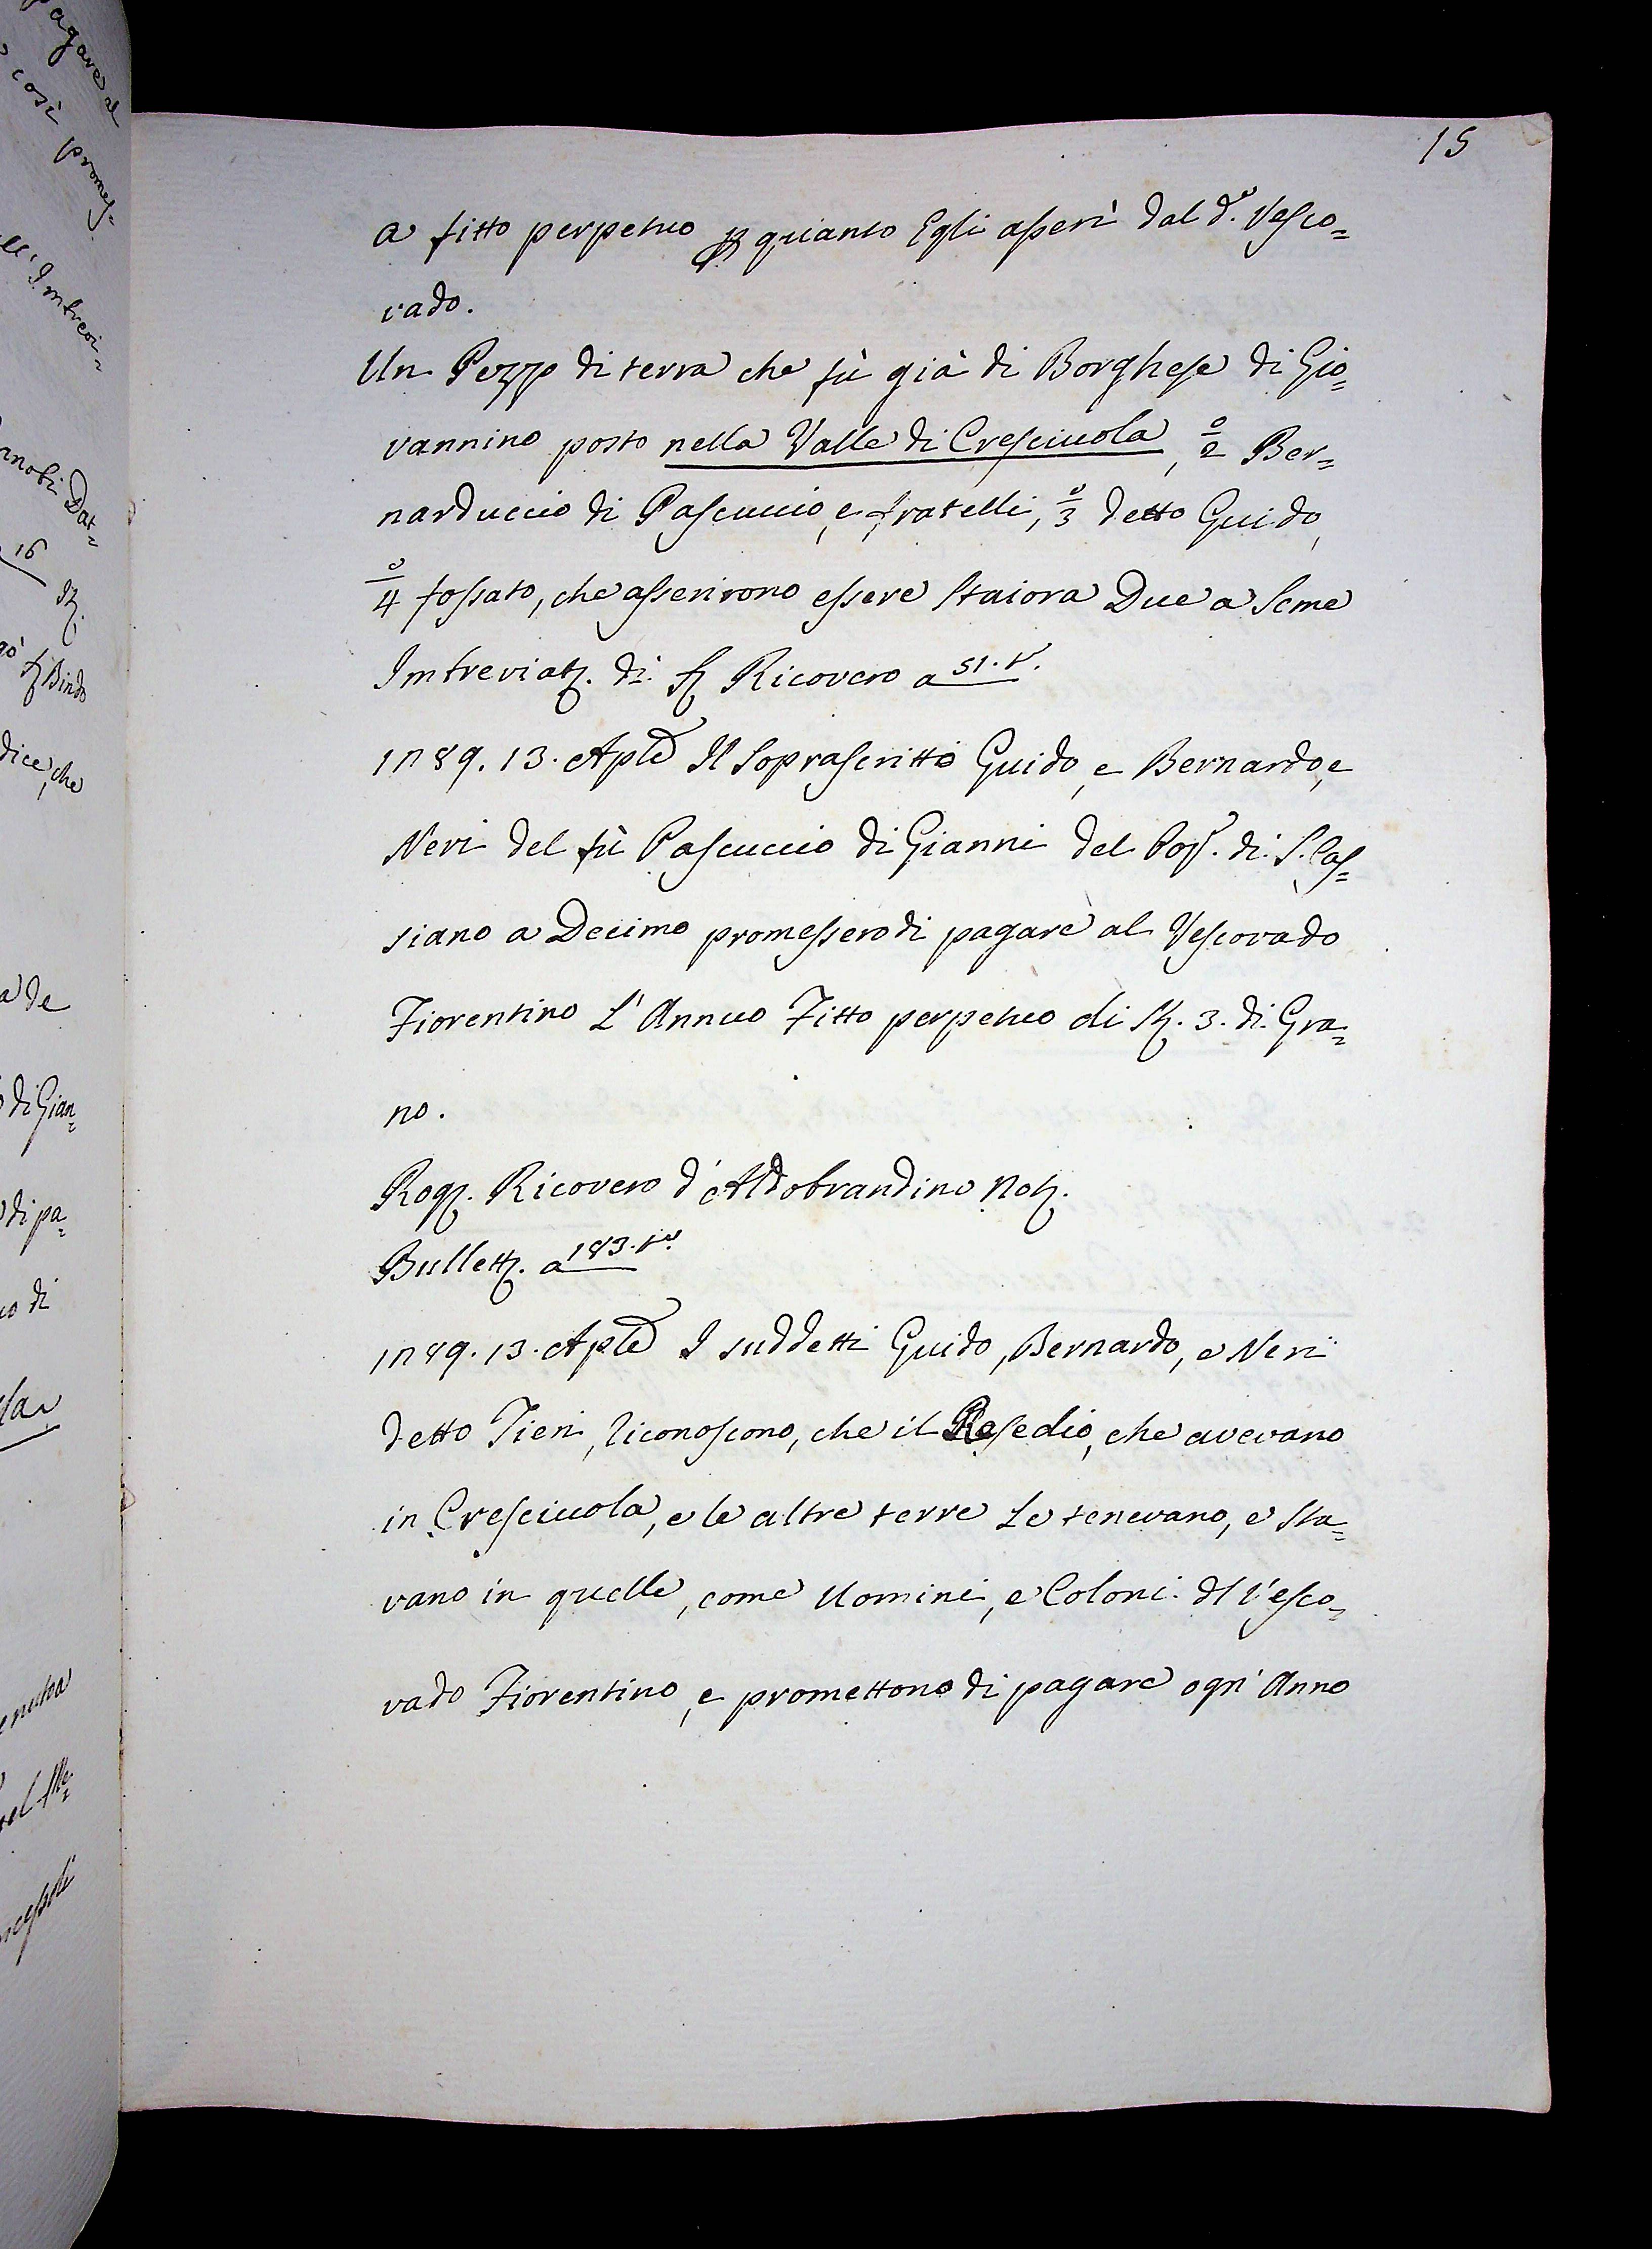 15
a fitto perpetuo p quanto Egli asserì dal dº. Vesco=
vado.
Un Pezzo di terra che fù già di Borghese di Gio=
vannino posto nella Valle di Cresciuola, 0/2 Ber=
narduccio di Pascuccio, e fratelli, 0/3 detto Guido,
0/4 fossato, che asserirono essere Staiora Due a Seme
Imbreviatz. di Sz Ricovero a 51. tº.
1289. 13. Aple Il Soprascritto Guido, e Bernardo, e
Neri del fù Pascuccio di Gianni del Popº. di S. Cas=
siano a Decimo promessero di pagare al Vescovado
Fiorentino L'Annuo Fitto perpetuo di Stz. 3. di Gra=
no.
Rogz. Ricovero d'Aldobrandino Notz.
Bullettz. a 183. tº.
1289. 13. Aple I suddetti Guido, Bernardo, e Neri
detto Tieri, riconoscono, che il Resedio, che avevano
in Cresciuola, e le altre terre Le tenevano, e Sta=
vano in quelle, come Uomini, e Coloni dl Vesco=
vado Fiorentino, e promettono di pagare ogn'Anno
pagare al
così promes=
Imbrevi=
Dat=
16
Bindo
dice, che
de
di Gian=
di pa=
di